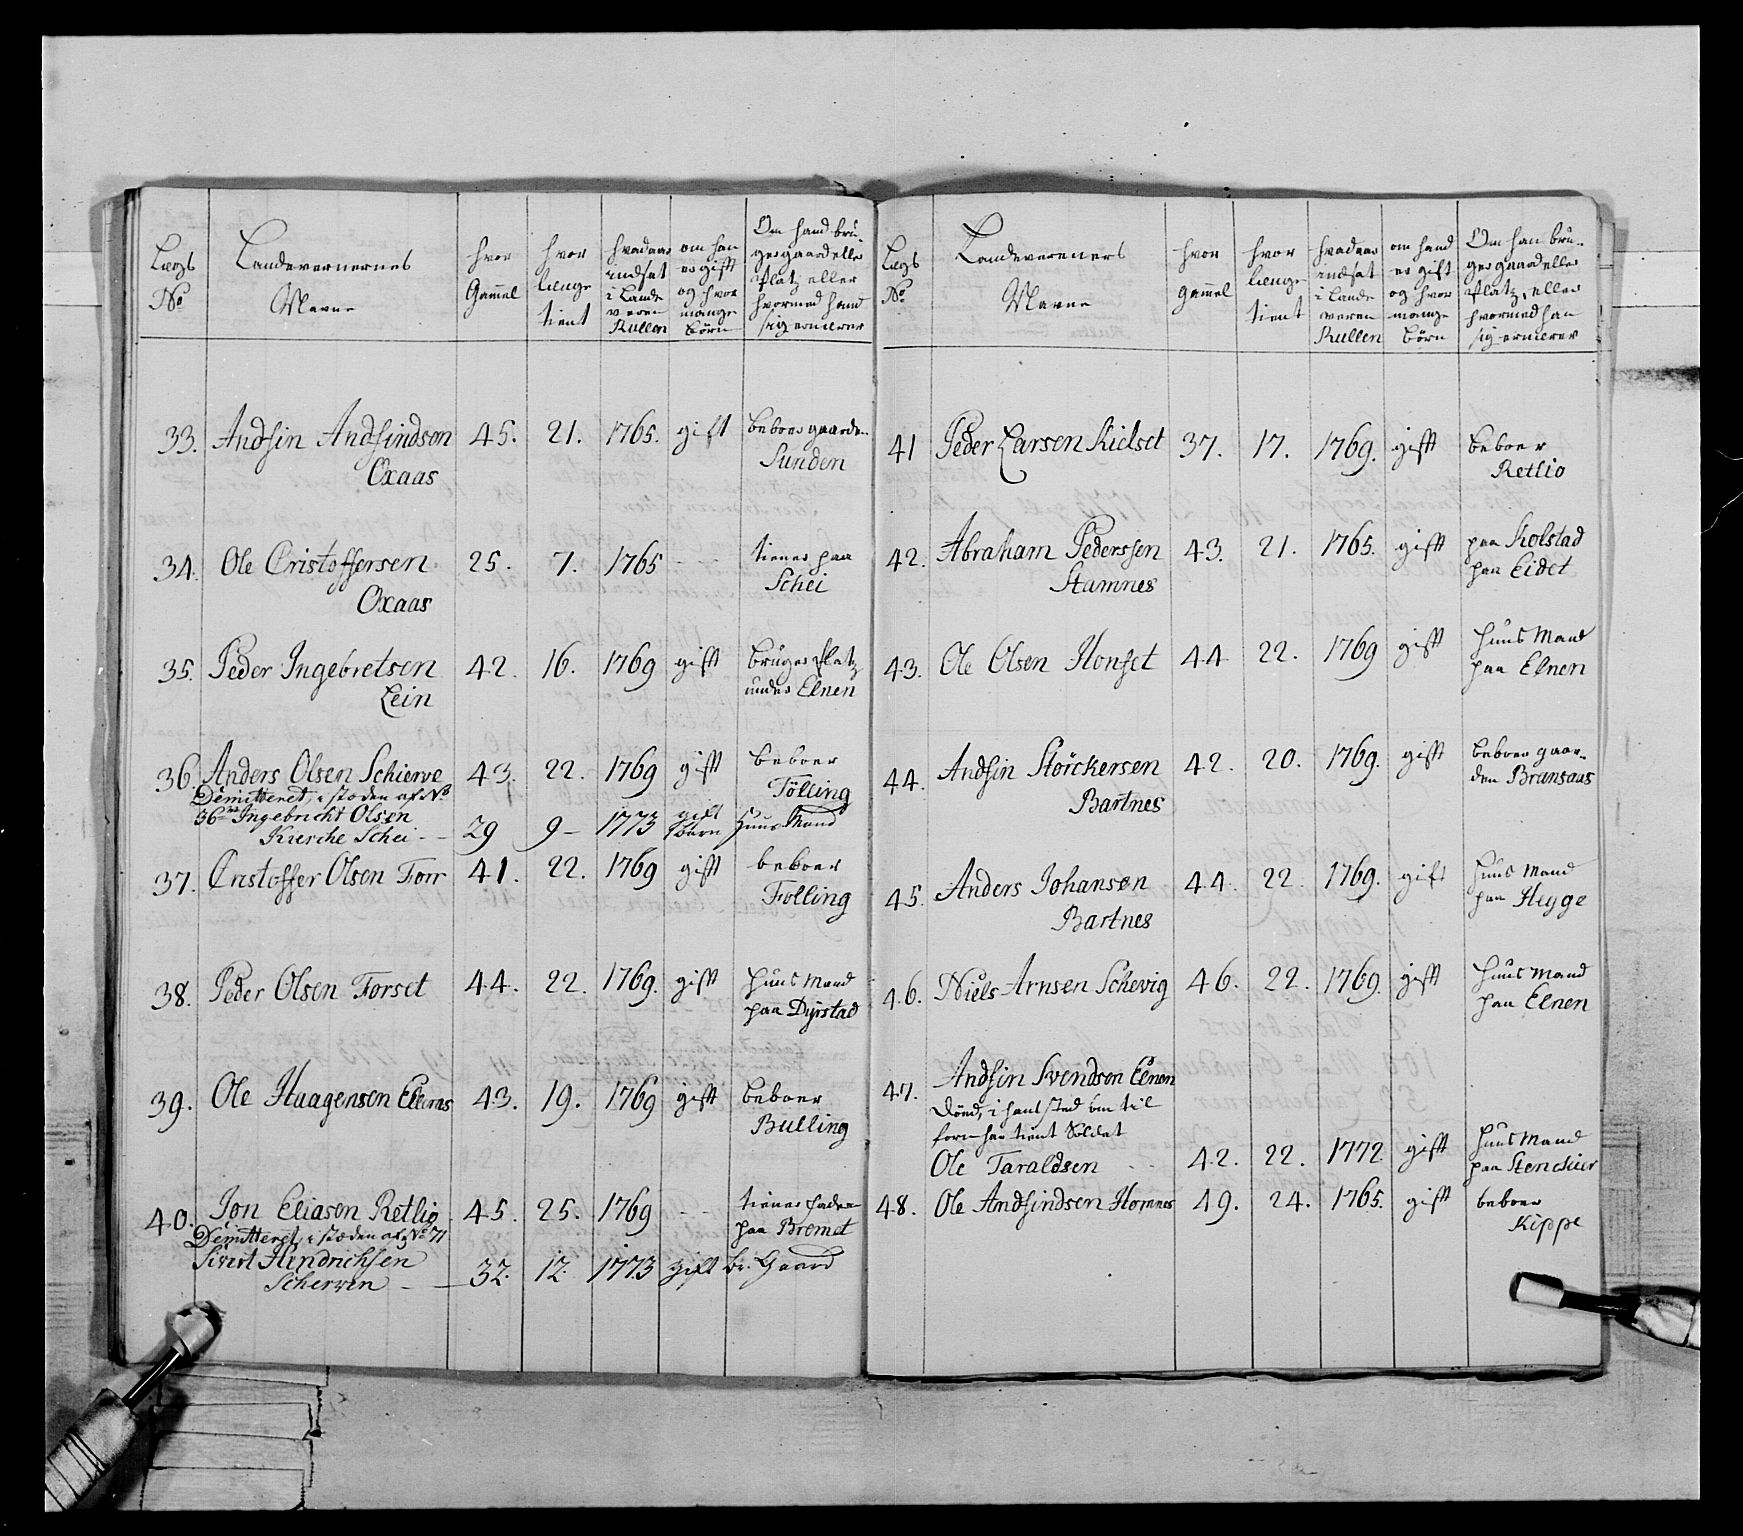 Lægs No | Landevernernes Navne | hvor Gamel | hvor længe tient | hvad aar indsat i Lande veren Rullen | om han er gift og hvor mange Börn | Om hand bruger gaard eller Platz eller hvormed hand sig ernærer
33. Andsin Andsindsen Oxaas | 45. | 21. | 1765. | gift | beboer gaarden Sunden
34. Ole Cristoffersen Oxaas | 25. | 7. | 1765 | - - | tiener paa Schei
35. Peder Ingebretsen Lein | 42. | 16. | 1769 | gift | bruger Platz under Elnen
36. Anders Olsen Schierve | 43. | 22. | 1769 | gift | beboer Fölling
Demitteret, i stæden af No
36 Ingebricht Olsen
Kierche Schei - | 29 | 9 - | 1773 | gift Börn | Huus Mand
37. Cristoffer Olsen Forr | 41. | 22. | 1769 | gift | beboer Folling
38. Peder Olsen Forset | 44. | 22. | 1769. | gift | Huus Mand paa Dyrstad
39. Ole Haagensen | 43. | 19. | 1769 | gift | beboer Bulling
40. Jon Eliasen Retlio | 45. | 25. | 1769 | - - | tiener Faderen paa Bremet
Demitteret, i stæden af No 71
Sivert Hindrichsen
Scherven - | 32. | 12. | 1773 | gift | br. Gaard
Lægs No | Landevereners Navne | hvor gamel | hvor længe tient | hvad aar indsat i Lande veren Rullen | om hand er gift og hvor mange Börn | Om han bruger gaard eller Platz, eller hvormed han sig ernærer
41 Peder Larsen Kielset | 37. | 17. | 1769. | gifft | beboer Retlio
42. Abraham Pederssen Stamnes | 43. | 21. | 1765. | gifft | paa Kolstad paa Eidet
43. Ole Olsen Honset | 44 | 22. | 1769 | gifft | Huus Mand paa Elnen
44. Andsin Störckersen Bartnes | 42. | 20. | 1769. | gifft | beboer gaarden Bransaas
45. Anders Johansen Bartnes | 44. | 22. | 1769. | gift | Huus Mand paa Heyge
46. Niels Arnsen Schevig | 46. | 22. | 1769. | gifft | Huus Mand paa Elnen
47. Andsin Svendsen Elnen
Döed, i hans sted om til
forn har tient Soldat
Ole Taraldsen - - | 42. | 22. | 1772 | gifft | Huus Mand paa Stenckier
48. Ole Andsindsen Homnes | 49. | 24. | 1765. | gifft | beboer Kippe